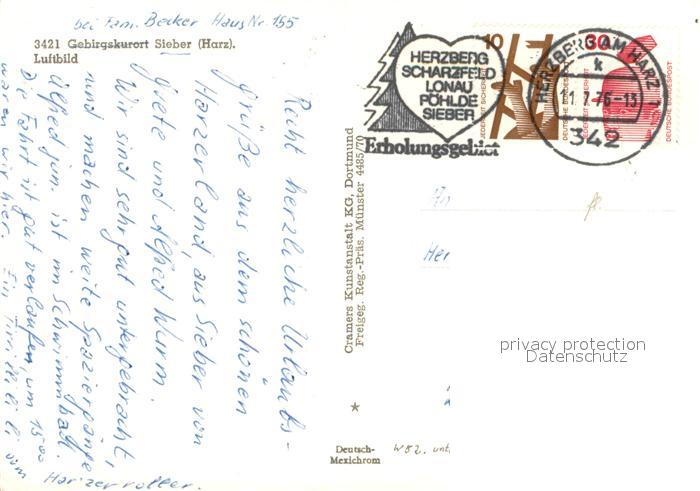 bei Fam. Becker Haus Nr. 155
3421 Gebirgskurort Sieber (Harz).
Luftbild
Recht herzliche Urlaubs-
grüße aus dem schönen
Harzerland, aus Sieber von
Grete und Alfred Wurm.
Wir sind sehr gut untergebracht,
und machen weite Spaziergänge
Alfred jun. ist im Schwimmbad.
Die Fahrt ist gut verlaufen, um 15⁰⁰
waren wir hier. Ein
vom Harzerroller.
Cramers Kunstanstalt KG, Dortmund
Freigeg. Reg.-Präs. Münster 4485/70
HERZBERG
SCHARZFELD
LONAU
PÖHLDE
SIEBER
Erholungsgebiet
10
JEDERZEIT SICHERHEIT
DEUTSCHE BUNDESPOST
30
JEDERZEIT SICHERHEIT
DEUTSCHE BUNDESPOST
HERZBERG AM HARZ 1
k
11.7.76-13
342
An
Her
privacy protection
Datenschutz
Deutsch-
Mexichrom
W82. unt.